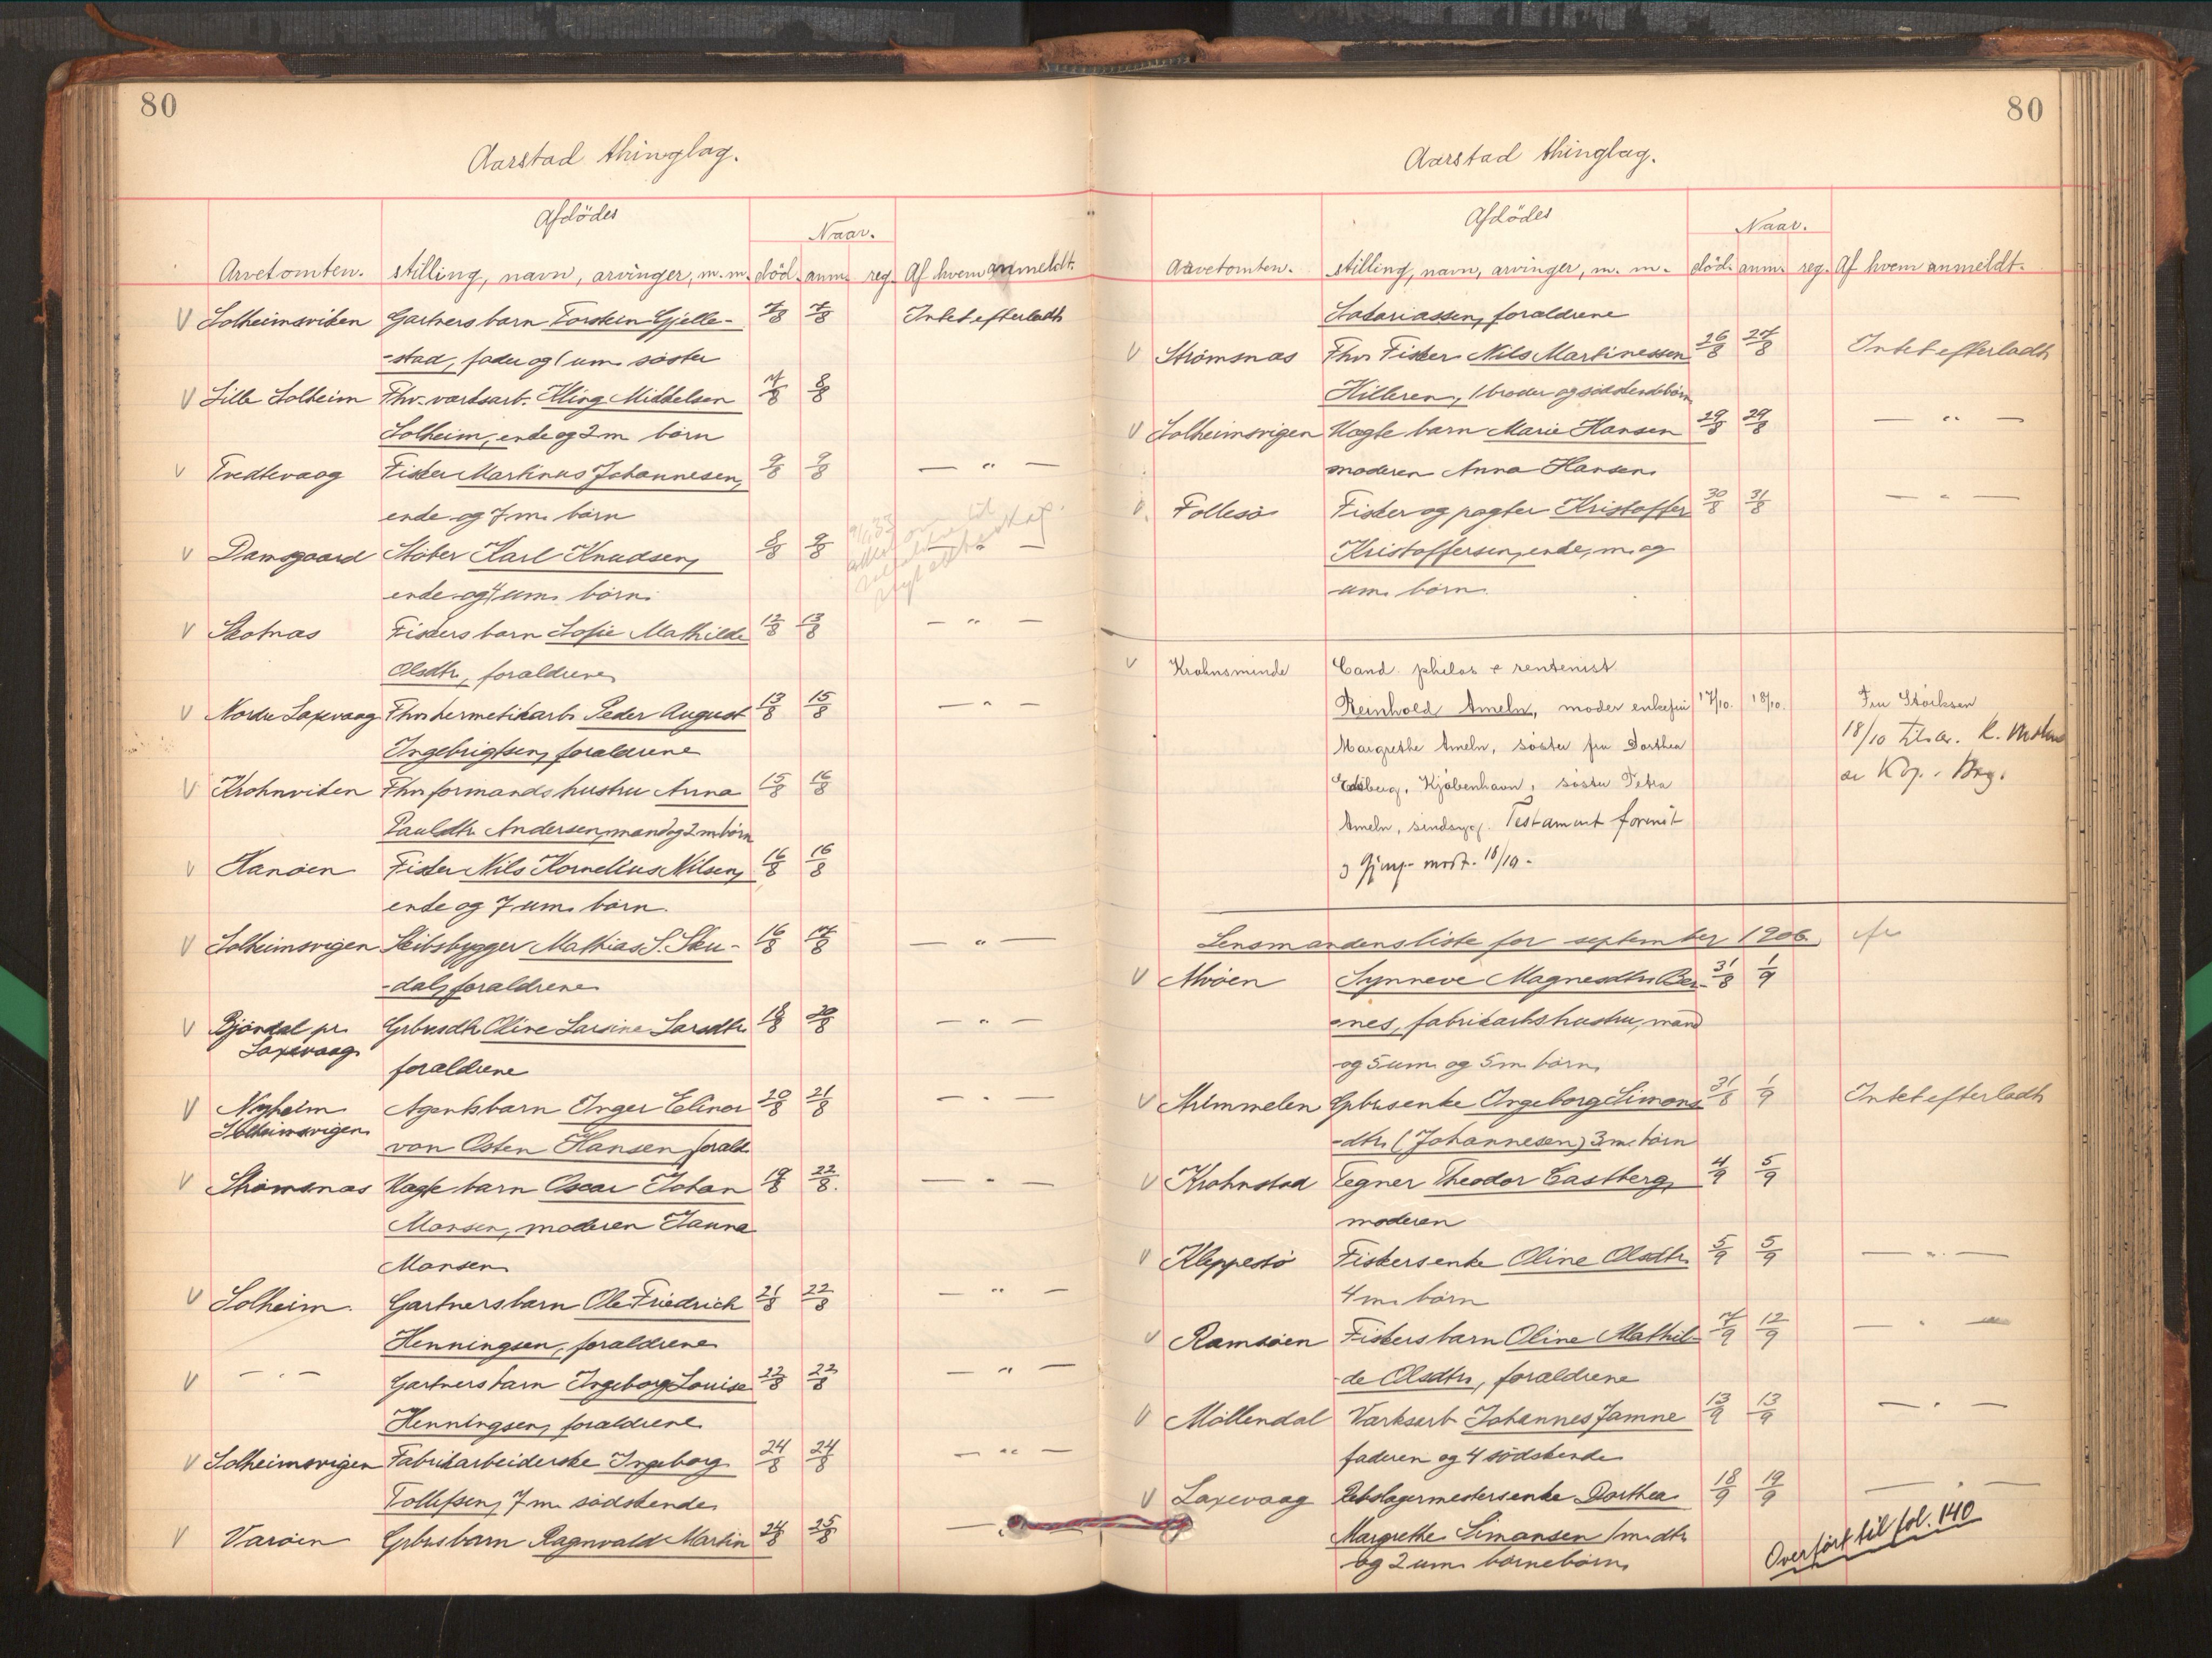 80
Aarstad thinglag.
Afdödes
Naar.
Arvetomten. stilling, navn, arvinger, m. m. död. anm. reg. Af hvem anmeldt.
V Solheimsviken Gartners barn Torstein Gjelle- 7/8 7/8 Intet efterladt
-stad, fader og 1 um. söster
V Lille Solheim Fhv. værksarb. Elling Mikkelsen 7/8 8/8
Solheim, enke og 2 m. börn
V Tredtevaag Fisker Martinus Johannesen, 9/8 9/8 — " —
enke og 7 m. börn
V Damsgaard Stöber Karl Knudsen, 8/8 9/8 — " —
enke og 4 um. börn.
V Skotnæs Fiskers barn Sofie Mathilde 12/8 13/8 — " —
Olsdtr., forældrene
V Nordre Laxevaag Fhv. hermetikarb. Peder August 13/8 15/8 — " —
Ingebrigtsen, forældrene
V Krohnviken Fhv. formands hustru Anna 15/8 16/8
Paulsdtr. Andersen, mand og 2 m. börn
V Hanöen Fisker Nils Kornelius Nilsen, 16/8 16/8
enke og 7 um. börn.
V Solheimsvigen Skibsbygger Mathias S. Sku- 16/8 17/8 — " —
-dal, forældrene
V Bjöndal pr. Gbrusdtr. Oline Larsine Larsdtr. 18/8 20/8 — " —
Laxevaag forældrene
V Nyheim Agents barn Inger Elinor 20/8 21/8 — " —
Solheimsvigen von Osten Hansen, foræld.
V Strömsnæs Uægte barn Oscar Johan 19/8 22/8. — " —
Monsen, moderen Hanna
Monsen
V Solheim. Gartners barn Ole Friedrich 21/8 22/8 — " —
Henningsen, forældrene
V — " — Gartners barn Ingeborg Louise 22/8 22/8 — " —
Henningsen, forældrene
V Solheimsvigen Fabrikarbeiderske Ingeborg 24/8 24/8 — " —
Tollefsen, 7 m. södskende
V Varöen Grbrs barn Ragnvald Martin 24/8 25/8 —
80
Aarstad thinglag.
Afdödes
Naar.
Arvetomten. stilling, navn, arvinger, m. m. död. anm. reg. Af hvem anmeldt.
Sakariassen, forældrene
V Strömsnæs Fhv. Fisker Nils Martinessen 26/8 27/8 Intet efterladt
Hilleren, 1 broder og södskendebörn
V Solheimsvigen Uægte barn Marie Hansen 29/8 29/8 — " —
moderen Anna Hansen
V. Follesö Fisker og pagter Kristoffer 30/8 31/8 — " —
Kristoffersen, enke, m. og
um. börn.
V Krohnsminde Cand. philos & rentenist
Reinhold Ameln, moder enkefru 17/10. 18/10. Fru Störksen
Margrethe Ameln, söster fru Dorthea 18/10
Edsberg, Kjöbenhavn, söster Petra
Ameln, sindssyg. Testament forevist
18/10 -
Lensmandens liste for september 1906.
V Alvöen Synneve Magnesdtr. Ber- 31/8 1/9
-nes, fabrikarbs hustru, mand
og 5 um. og 5 m. börn,
V Strimmelen Gbrusenke Ingeborg Simons- 31/8 1/9 Intet efterladt
-dtr. (Johannesen) 3 m. börn
V Krohnstad Tegner Theodor Castberg, 4/9 5/9
moderen
V Kleppestö Fiskersenke Oline Olsdtr. 5/9 5/9 — " —
4 m. börn
V Ramsöen Fiskers barn Oline Mathil- 7/9 12/9 — " —
-de Olsdtr., forældrene
V Möllendal Værksarb. Johannes Jamne 13/9 13/9 — " —
faderen og 4 södskende
V Laxevaag Rebslagermestersenke Dorthea 18/9 19/9 — " —
Margrethe Simonsen 1 m. dtr.
og 2 um. börnebörn,
Overfört til fol. 140